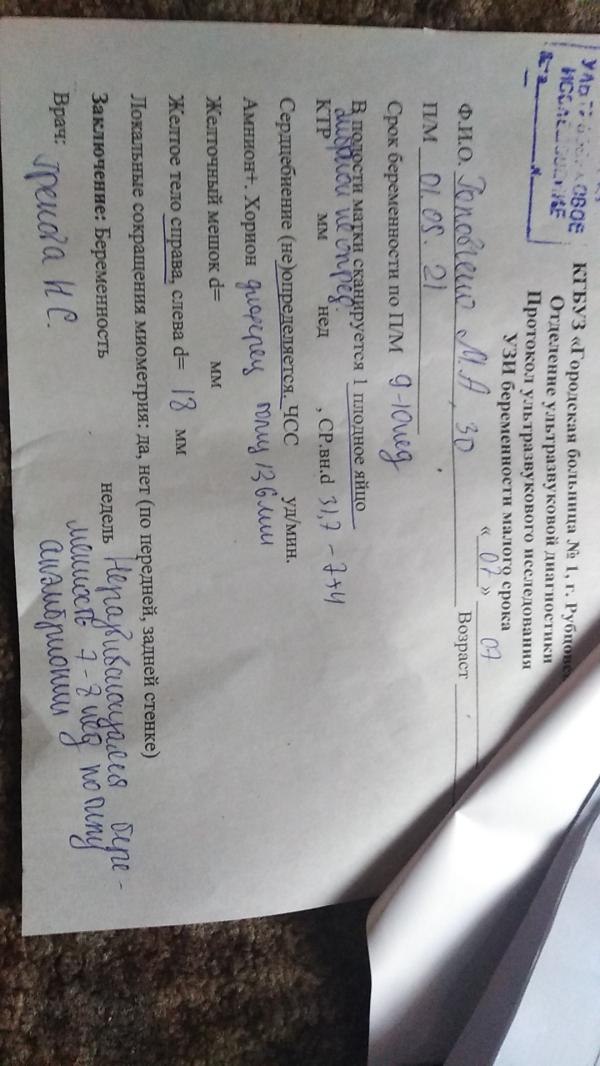 УЛЬТРАЗВУКОВОЕ
ИССЛЕДОВАНИЕ
КГБУЗ «Городская больница № 1, г. Рубцовск
Отделение ультразвуковой диагностики
Протокол ультразвукового исследования
УЗИ беременности малого срока
« 07 » 07
Ф.И.О. М.А, 30 Возраст
П/М 01.05.21
Срок беременности по П/М 9-10нед
В полости матки сканируется 1 плодное яйцо
эмбрион не опред.
КТР мм нед , СР.вн.d 31,7 - 7+4
Сердцебиение (не)определяется. ЧСС уд/мин.
Амнион+. Хорион толщ 13,6мм
Желточный мешок d= мм
Желтое тело справа, слева d= 18 мм
Локальные сокращения миометрия: да, нет (по передней, задней стенке)
Заключение: Беременность недель Неразвивающаяся бере-
менность 7-8 нед по типу
анэмбрионии
Врач: Н С.